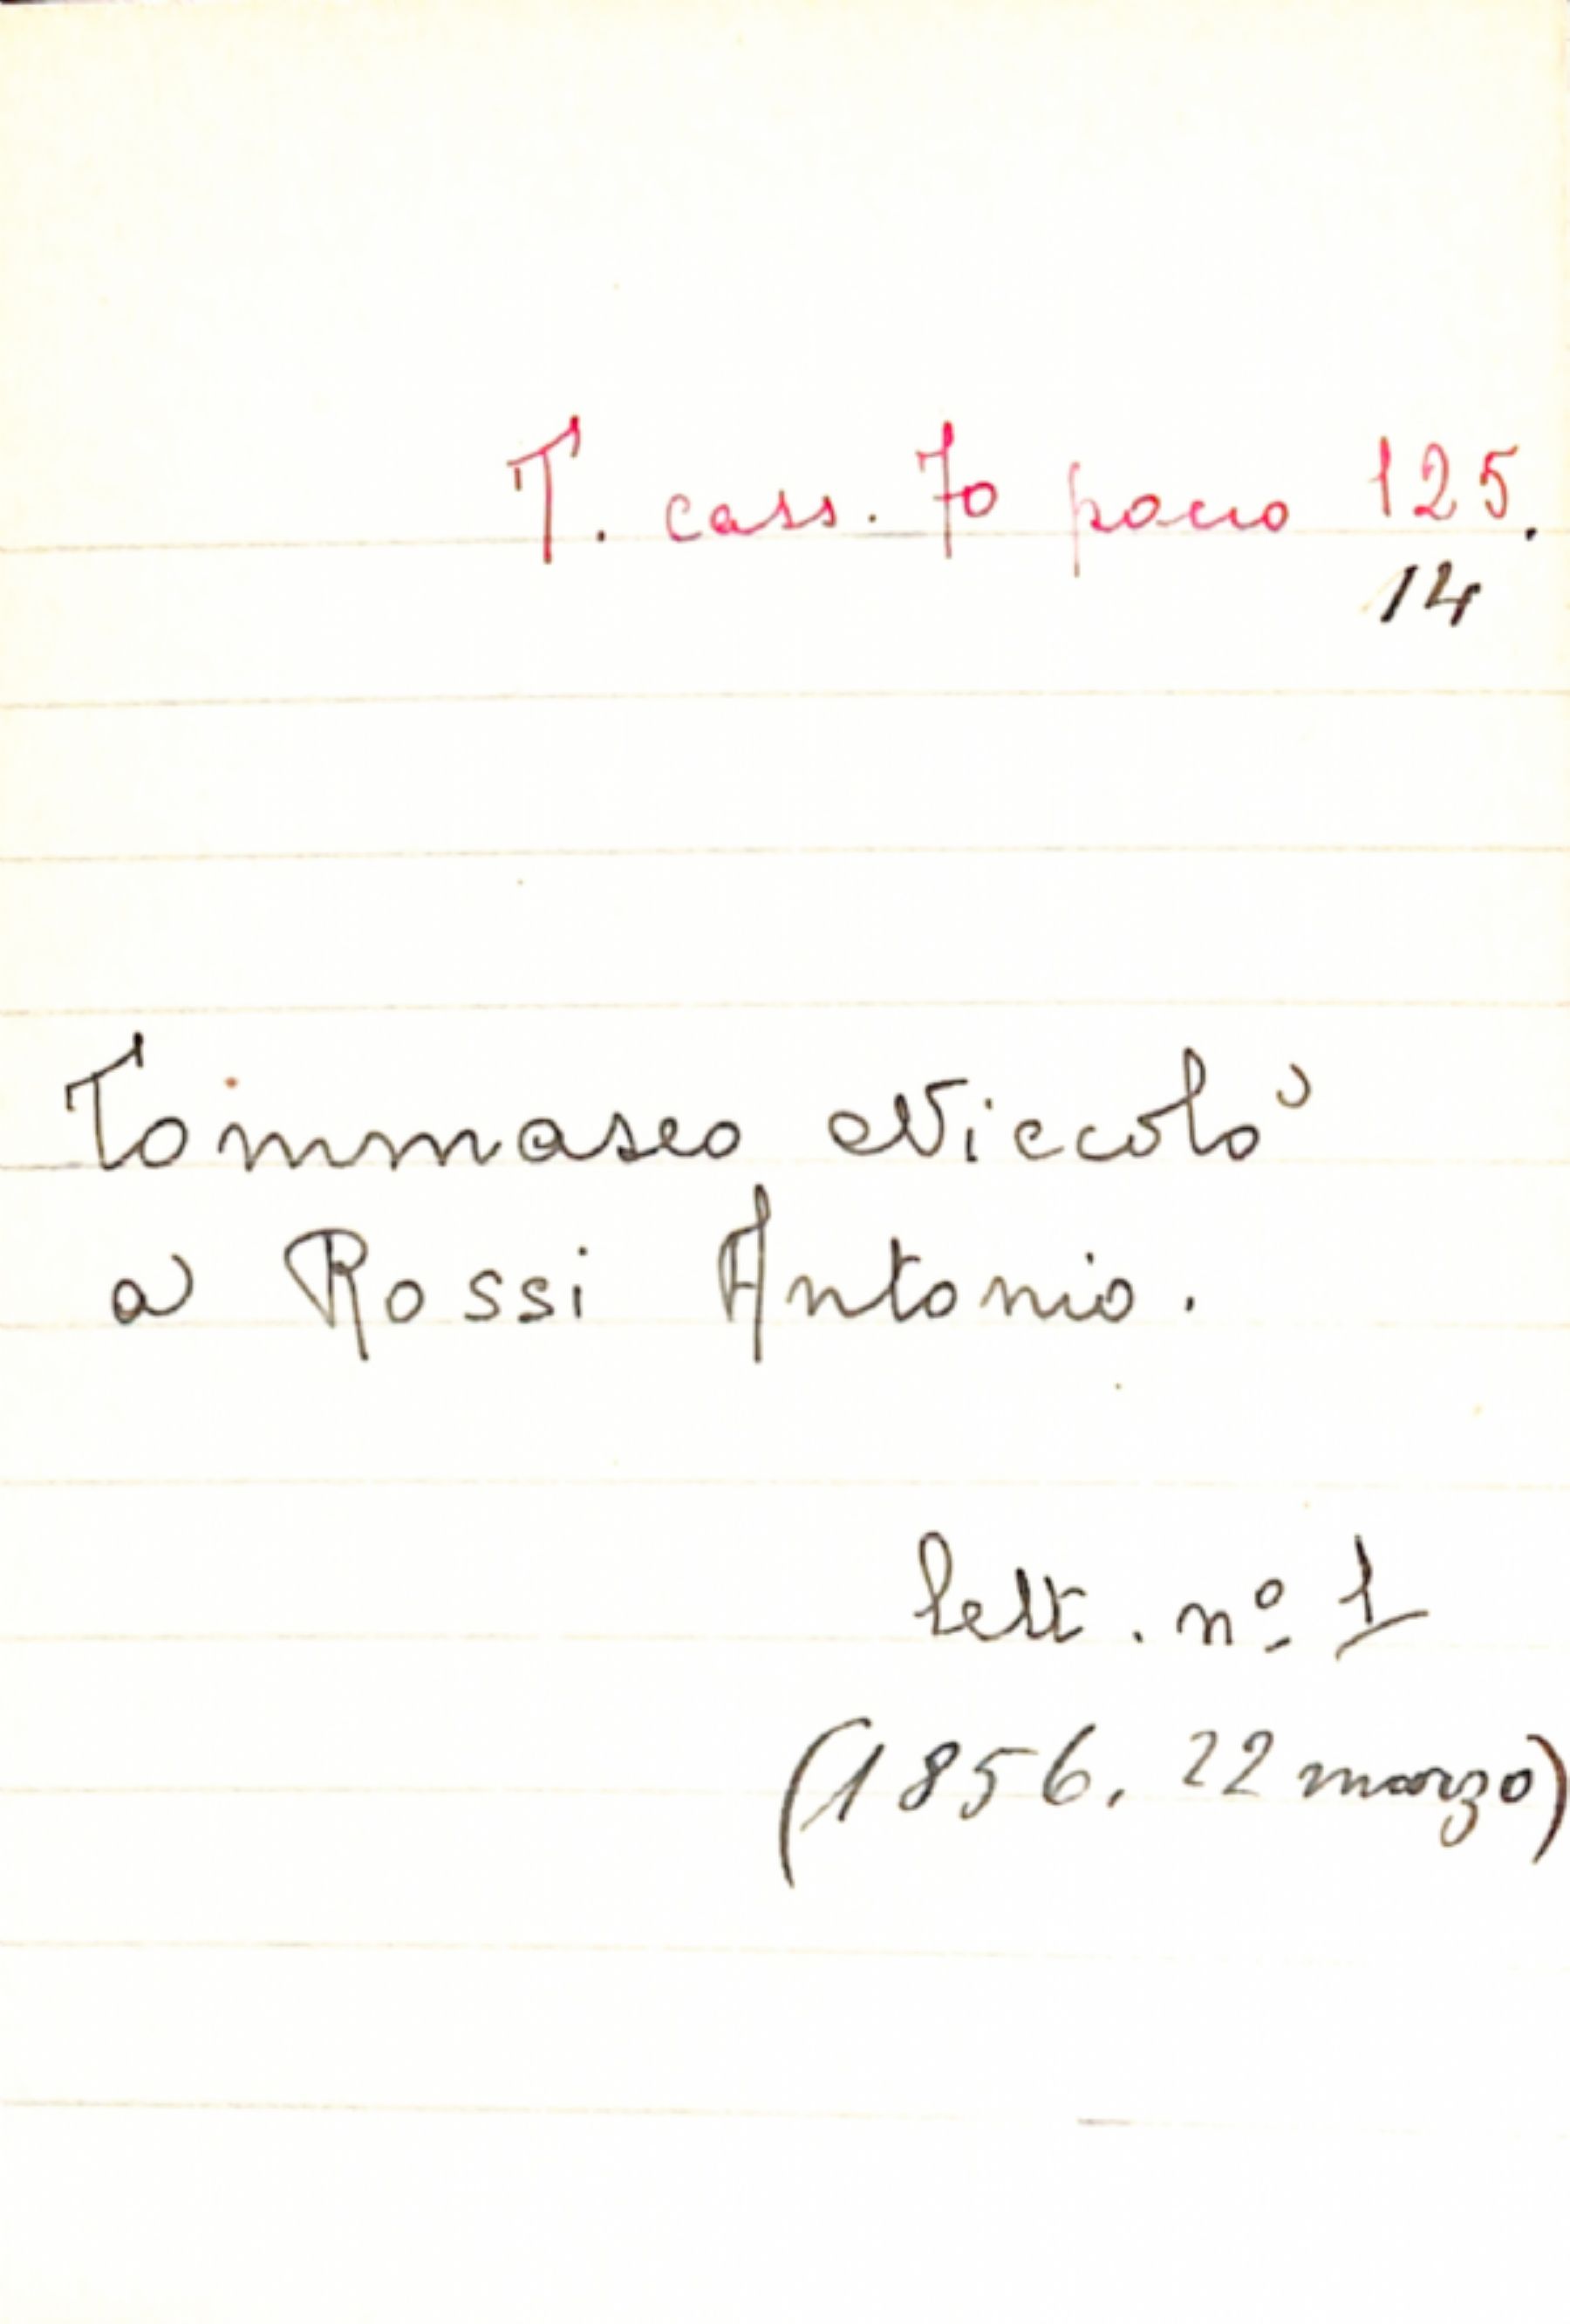 T. cass. 70 pacco 125.
14
Tommaseo Niccolò
a Rossi Antonio.
lett. nº 1
(1856, 22 marzo)